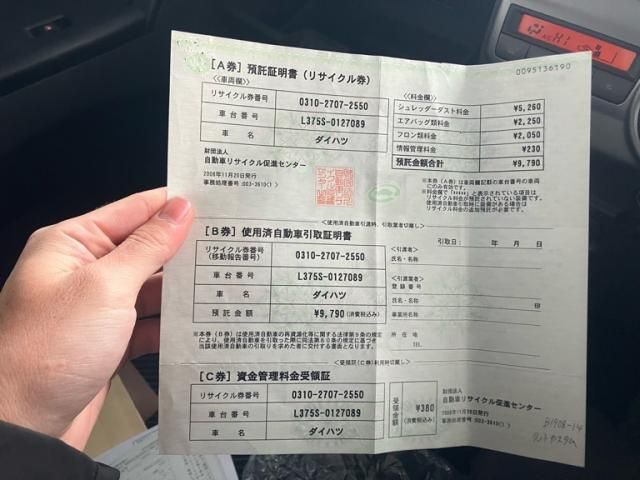 AC HI
0095136190
[A券] 預託証明書 (リサイクル券)
<車両欄>
リサイクル券番号 0310-2707-2550
車台番号 L375S-0127089
車名 ダイハツ
財団法人
自動車リサイクル促進センター
2008年11月20日発行
<料金欄>
シュレッダーダスト料金 ¥5,260
エアバッグ類料金 ¥2,250
フロン類料金 ¥2,050
情報管理料金 ¥230
預託金額合計 ¥9,790
※本券(A券)は車両欄記載の車台番号の車両
にのみ有効です。
<使用済自動車引渡時、引取業者切離し>
[B券] 使用済自動車引取証明書
リサイクル券番号
(移動報告番号) 0310-2707-2550
車台番号 L375S-0127089
車名 ダイハツ
預託金額 ¥9,790(消費税込み)
引取日: 年 月 日
<引渡者>
氏名・名称
<引取業者>
登録番号
氏名・名称 印
事業所名称
所在地
TEL
[C券] 資金管理料金受領証
リサイクル券番号 0310-2707-2550
車台番号 L375S-0127089
車名 ダイハツ
受領金額 ¥380
(消費税込み)
財団法人
自動車リサイクル促進センター